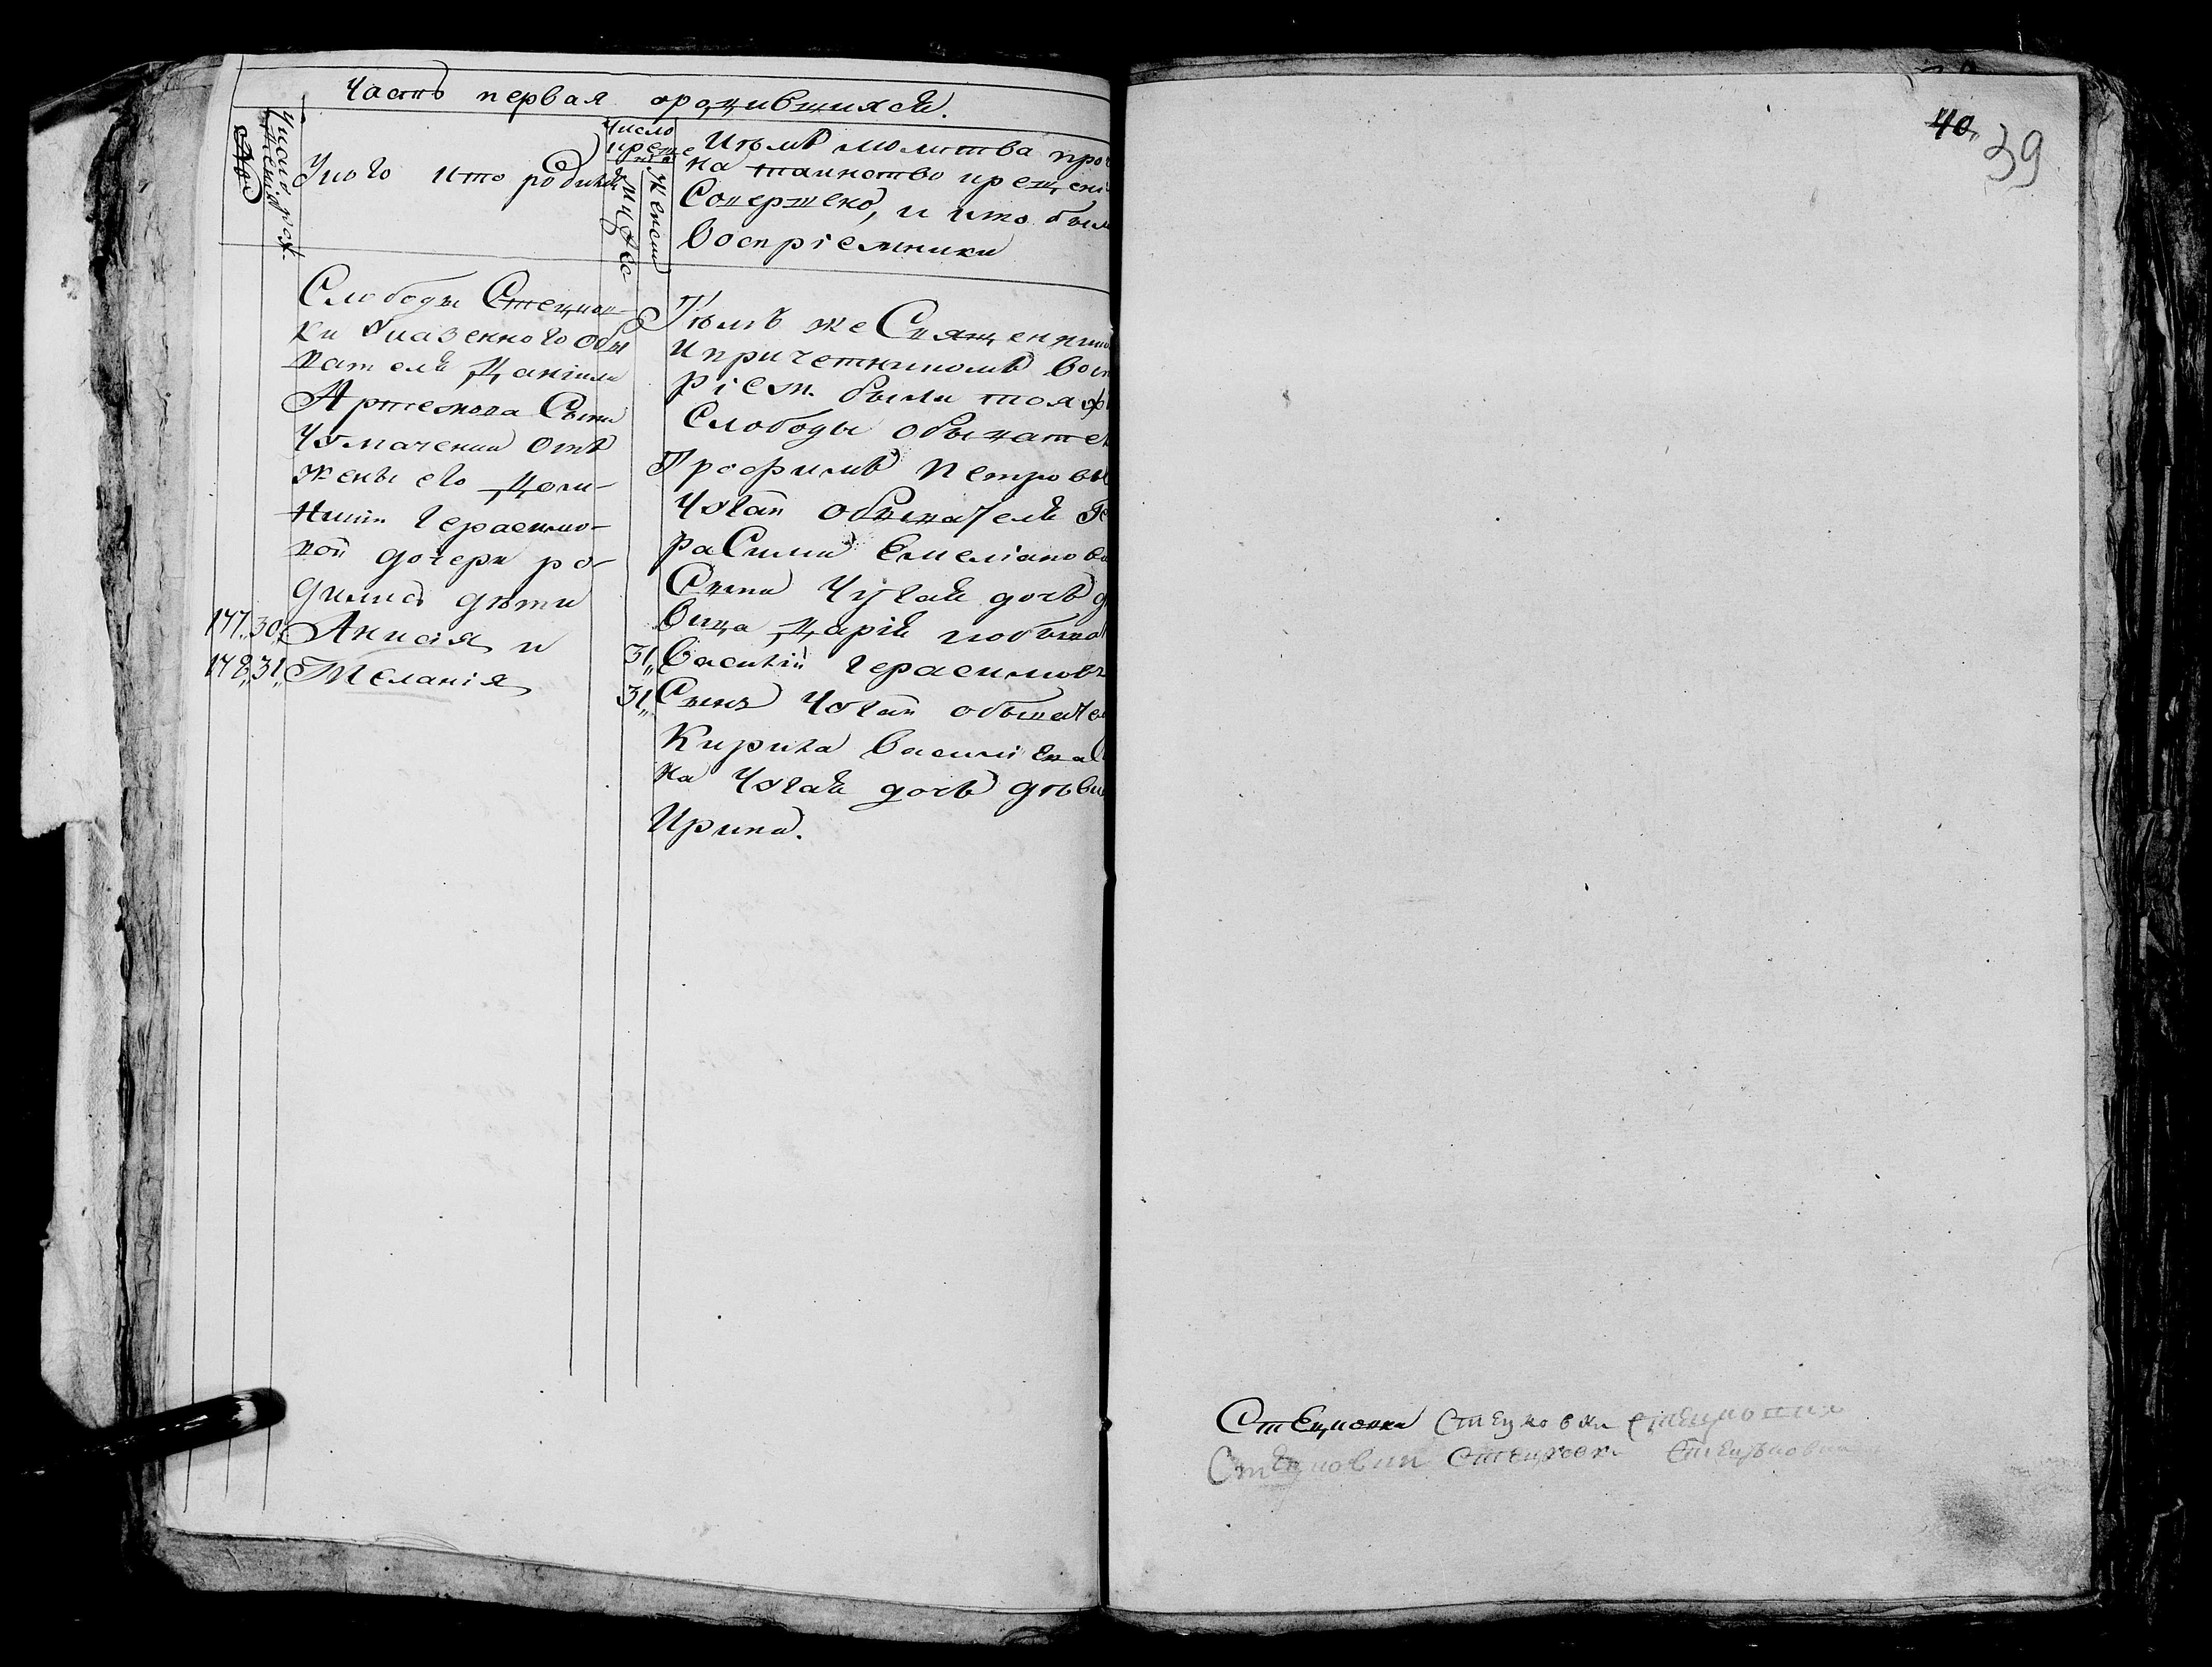 Часть первая ородившихся.
Число рож
дения
У кого кто родился
Число
креще
нія
Мужеск
Женски
Кѣмъ молитва
на таинство крещені
Совершено, и кто был
Воспріемники
Слободы Стецков-
ки казенного обы
вателя Даніила
Артемова Сына
Чумаченка отъ
жены его Дом-
нікіи Герасимо-
вой дочери ро-
дились дѣти
177 30 Анисія и
178 31 Меланія
Тѣмъ же Священник
и причетникомъ
ріем. были тоя ж
Слободы обывател
Трофимъ Петров
Чȣгай обывателя Ге
расима Емеліанова
Сына Чугая дочь дѣ
вица Дарія
31 Василій Герасимовъ
31 Сынъ Чȣгай обывател
Кирила Василіева
на Чȣгая дочь дѣви
Ирина.
40
39
Стецковки Стецковки Стецковки
Стецковки Стецковки Стецковки